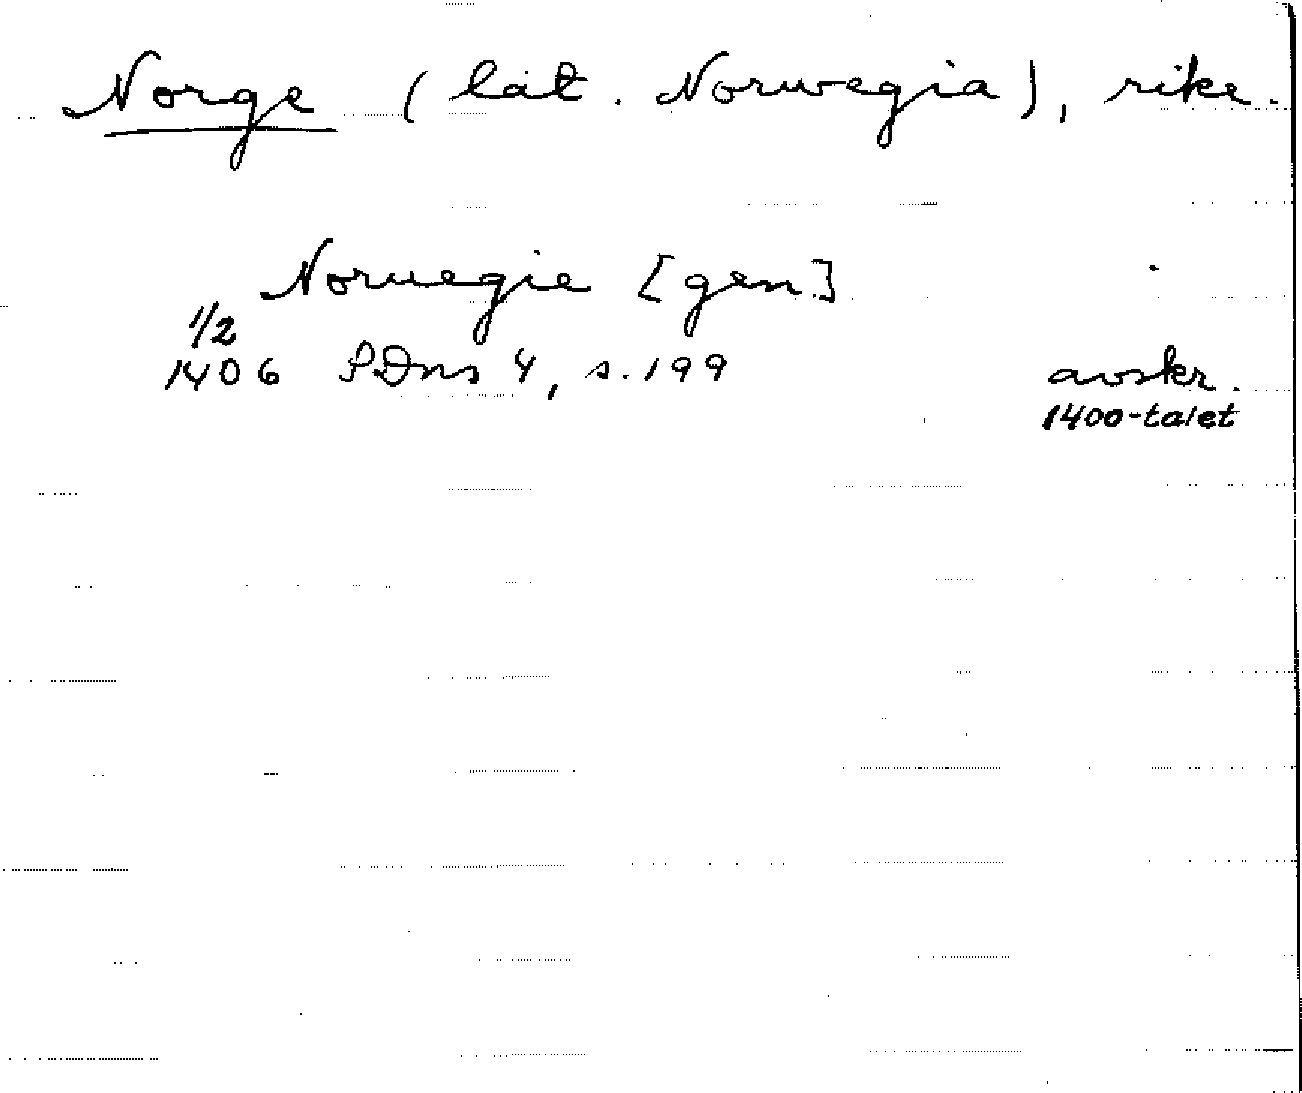 Norge (lat. Norwegia), rike.
Noruegie [gen.]
1/2
1406 SDns 4, s. 199 avskr.
1400-talet